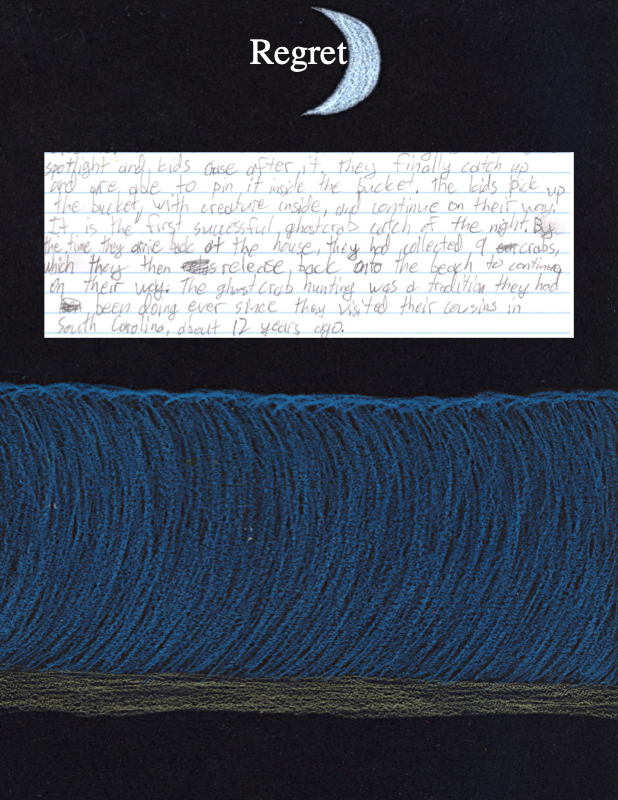 Regret
spotlight and kids chase after it. they finally catch up
and are able to pin it inside the bucket. The kids pick up
the bucket, with creature inside, and continue on their way.
It is the first successful ghostcrab catch of the night. By
the time they arrive back at the house, they had collected 9 crabs,
which they then release back onto the beach to continue
on their way. The ghost crab hunting was a tradition they had
been doing ever since they visited their cousins in
South Carolina, about 12 years ago.